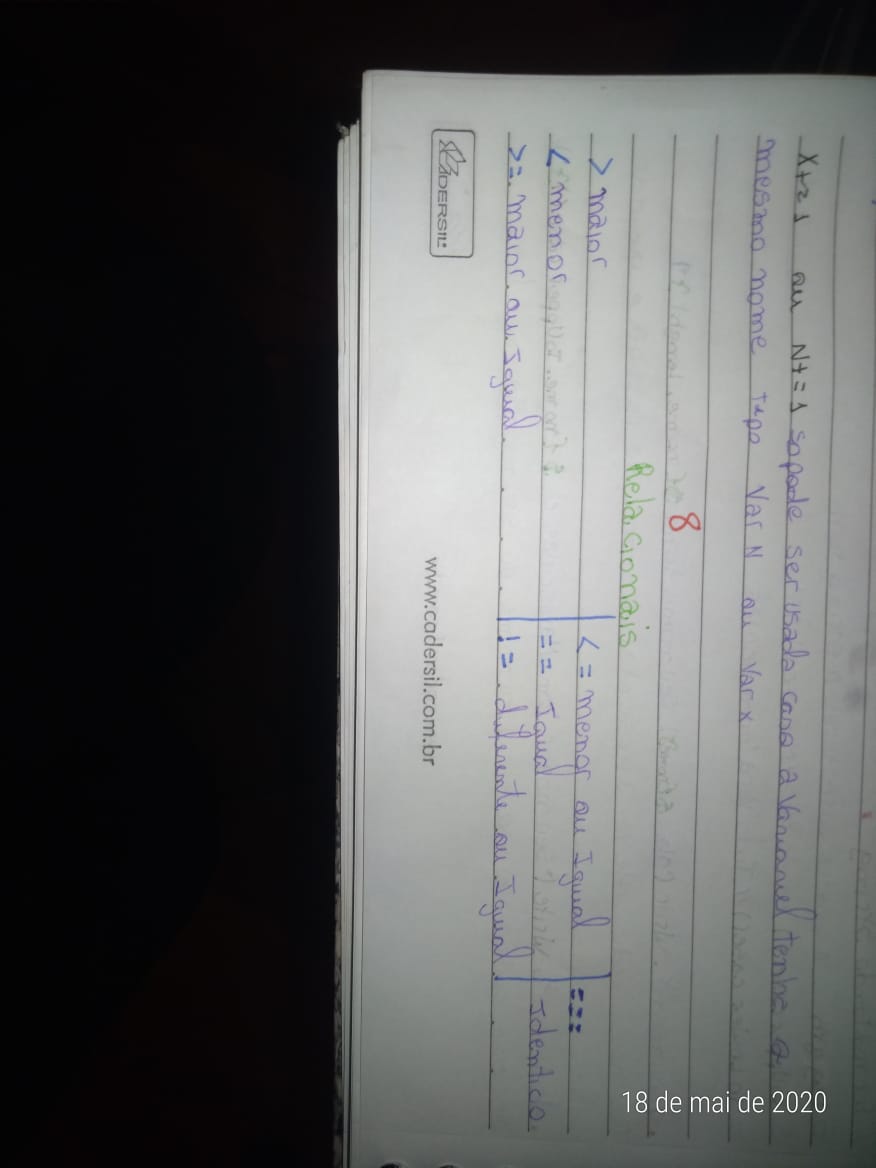 x+=1 ou N+=1 so pode ser usada caso a variavel tenha o
mesmo nome tipo Var N ou Var x
8
Relacionais
> maior | <= menor ou Igual | ===
< menor | == Igual | Identico
>= maior ou Igual | != diferente ou Igual |
CADERSIL
www.cadersil.com.br
18 de mai de 2020